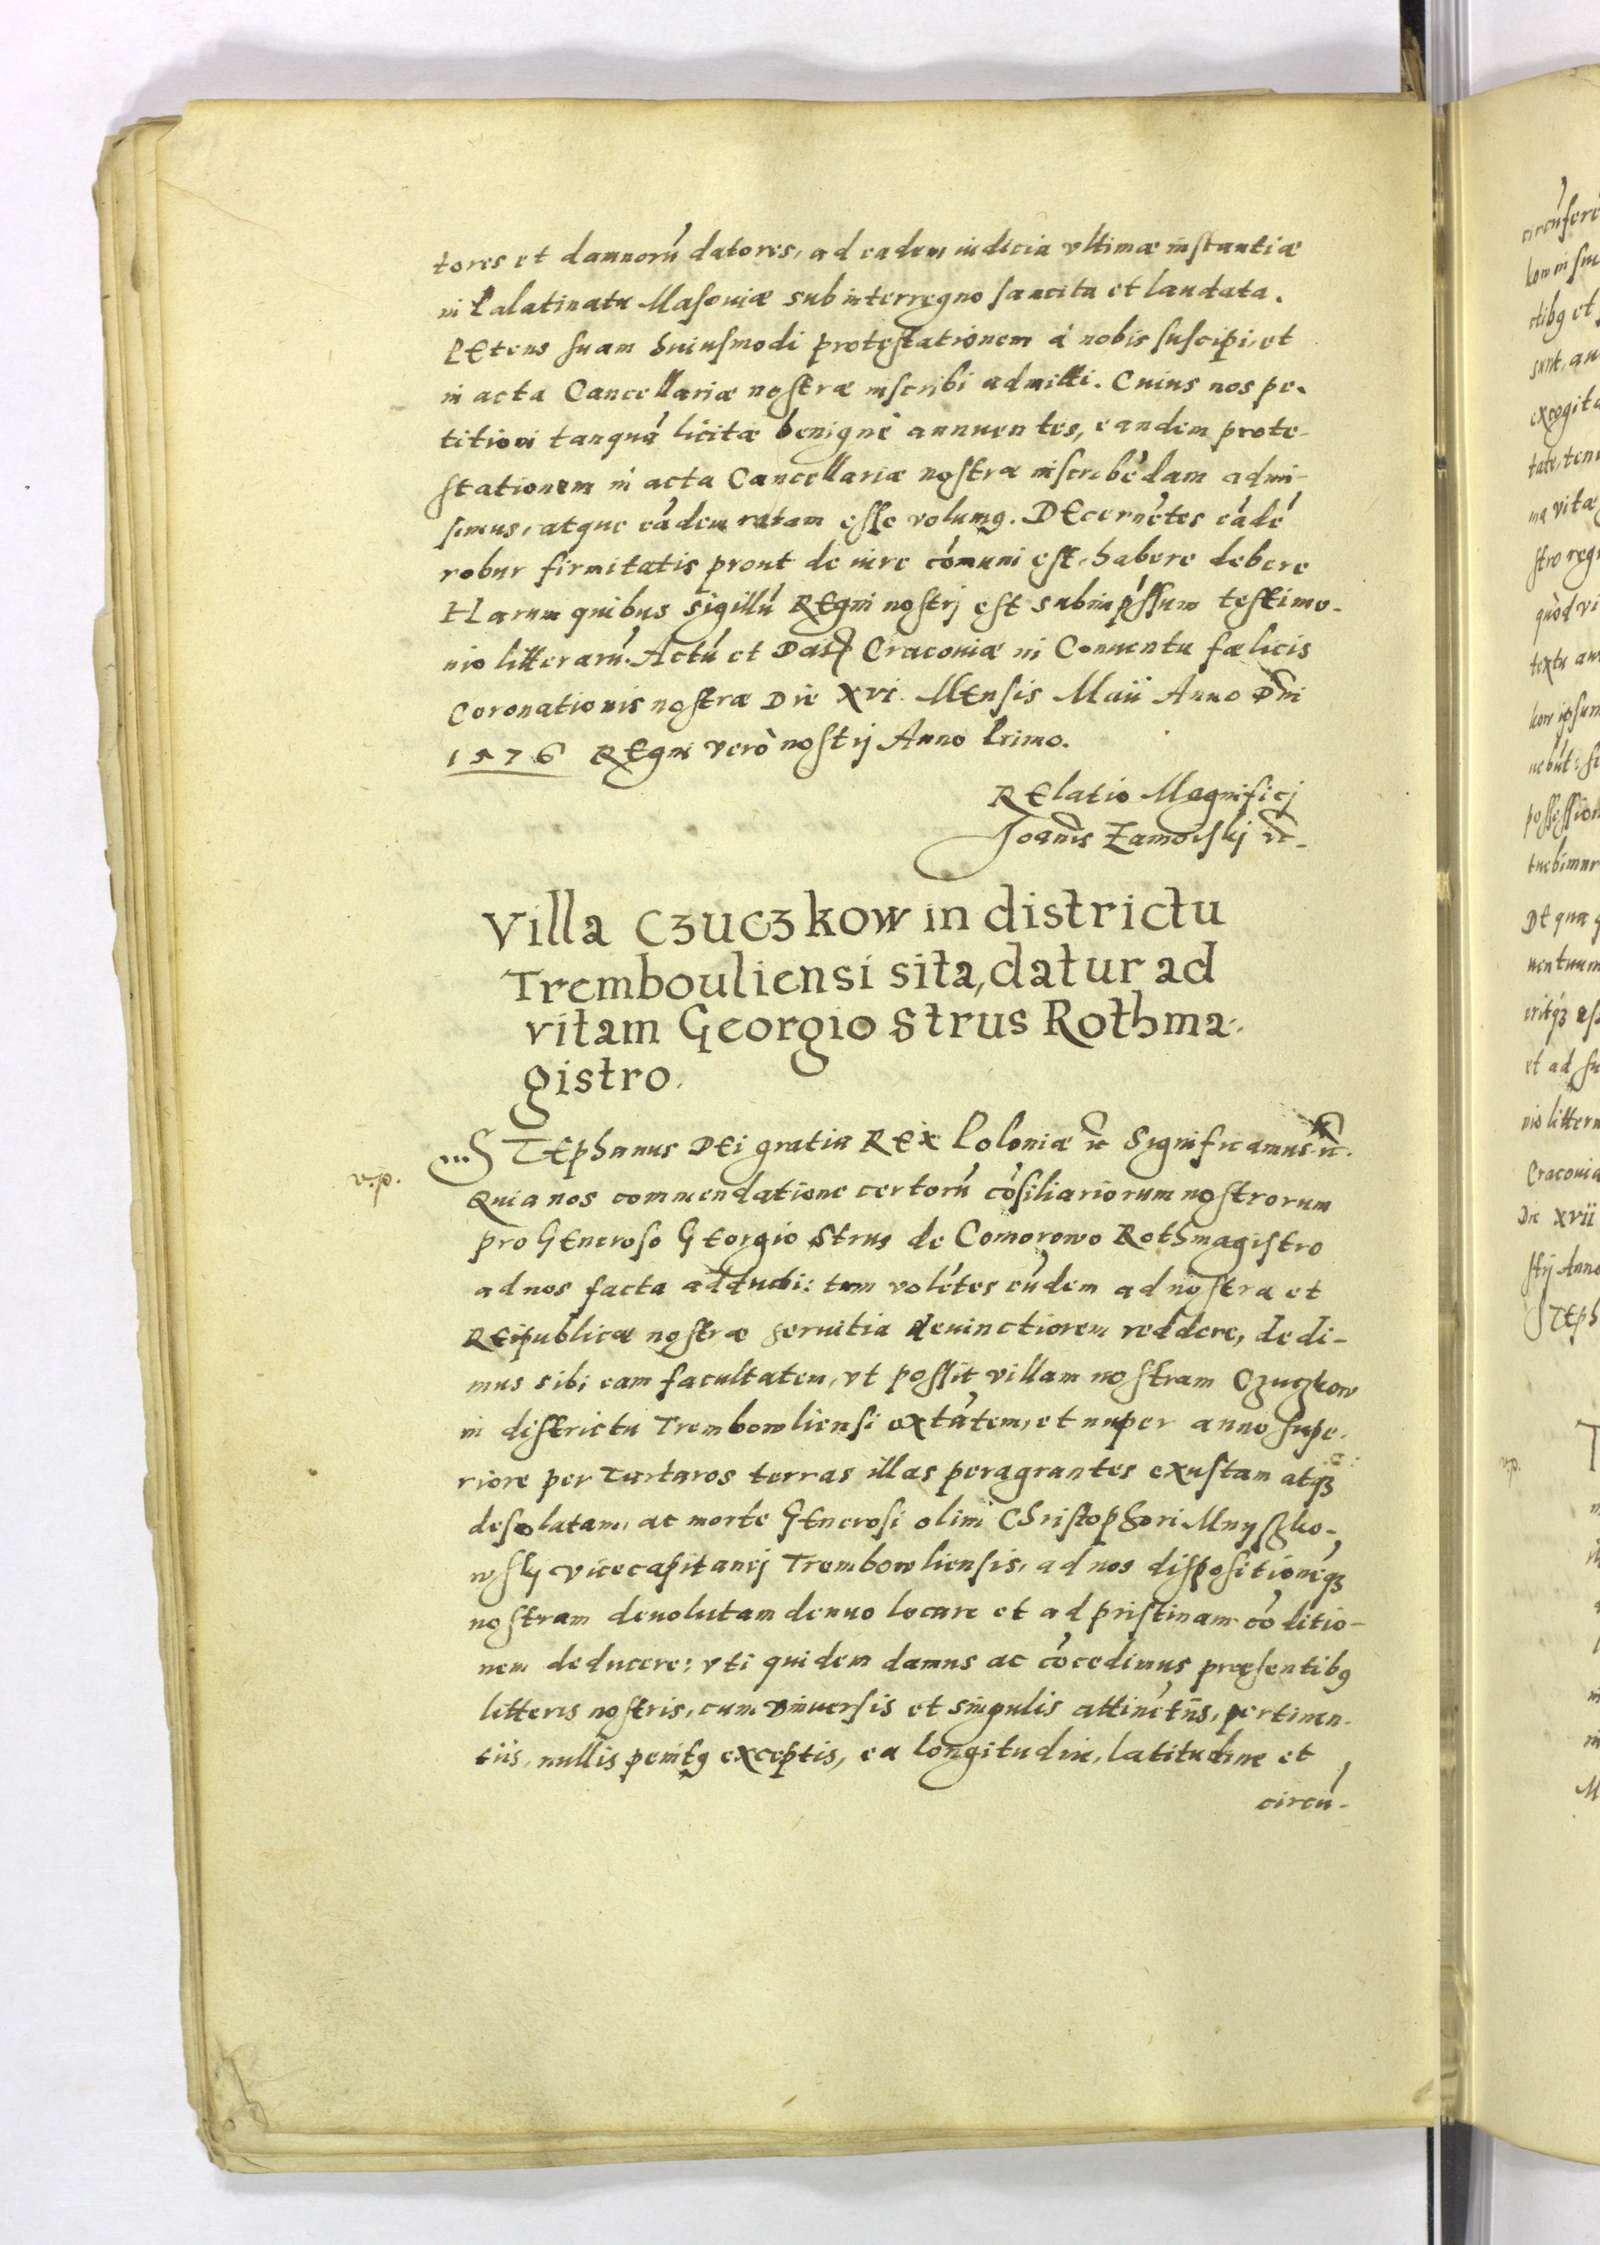 tores et damnorū datores, ad eadem iudicia vltimæ instantiæ
in Palatinatu Masouiæ sub interregno sancita et laudata.
PEtens suam huiusmodi protestationem à nobis suscipi, et
in acta Cancellariæ nostræ inscribi admitti. Cuius nos pe-
titioni tanquā licitæ benignè annuentes, eandem prote-
stationem in acta Cancellariæ nostræ inscribēdam admi-
simus, atque eādem ratam esse volumꝰ. DEcernētes eādē
robur firmitatis prout de iure cōmuni est, habere debere
Harum quibus sigillū REgni nostrj est subimpressum testimo-
nio litterarū. Actū et Datȝ Cracouiæ in Conuentu fœlicis
Coronationis nostræ Die XVI. MEnsis Maii Anno Dni
1576 REgni verò nostrj Anno Primo.
RElatio Magnificj
Joanis Zamoiskj etc.
Villa Czuczkow in districtu
Trembouliensi sita, datur ad
vitam Georgio Strus Rothma-
gistro.
STEphanus DEi gratia REx Poloniæ etc Significamus etc.
v.p.
Quia nos commendatione certorū cōsiliariorum nostrorum
pro GEneroso GEorgio Strus de Comorowo Rothmagistro
ad nos facta adducti: tum volētes eūdem ad nostra et
REipublicæ nostræ seruitia deuinctiorem reddere, dedi-
mus sibi eam facultatem, vt possit villam nostram Czuczkow
in districtu Trembowliensi extātem, et nuper anno supe-
riore per Tartaros terras illas peragrantes exustam atqȝ
desolatam, ac morte GEnerosi olim Christophori Mnyszko-
wskj vicecapitanej Trembowliensis, ad nos dispositionēqȝ
nostram deuolutam denuo locare et ad pristinam cōditio-
nem deducere: vti quidem damus ac cōcedimus præsentibꝰ
litteris nostris, cum vniuersis et singulis attinētiis, pertinen-
tiis, nullis penitꝰ exceptis, ea longitudine, latitudine et
circū-